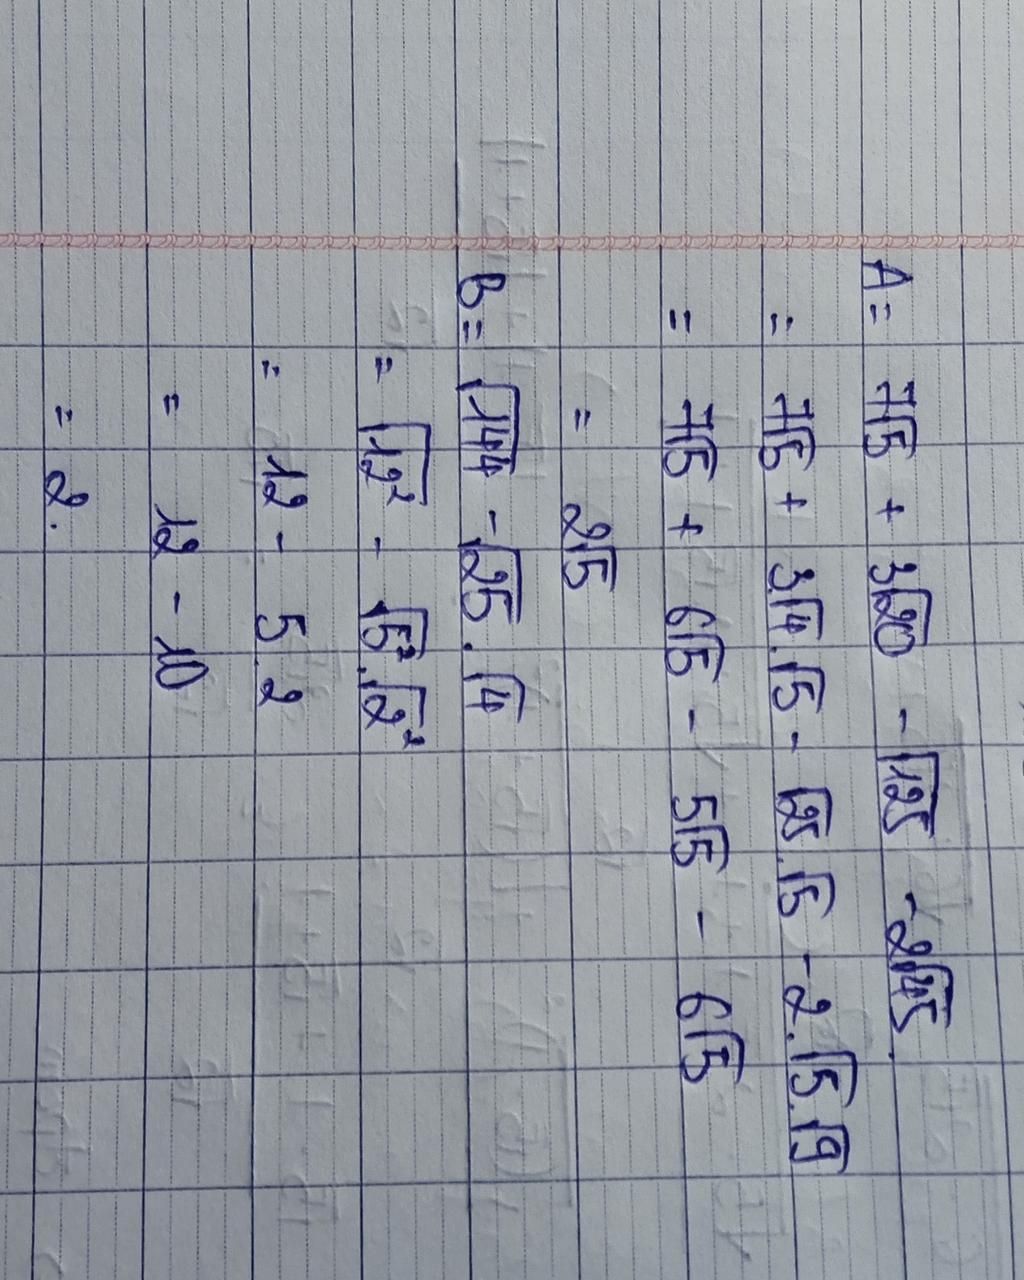 A = 7√5 + 3√20 - √125 - 2√45.
= 7√5 + 3√4.√5 - √25.√5 - 2.√5.√9
= 7√5 + 6√5 - 5√5 - 6√5
= 2√5
B = √144 - √25.√4
= √12² - √5².√2²
= 12 - 5.2
= 12 - 10
= 2.